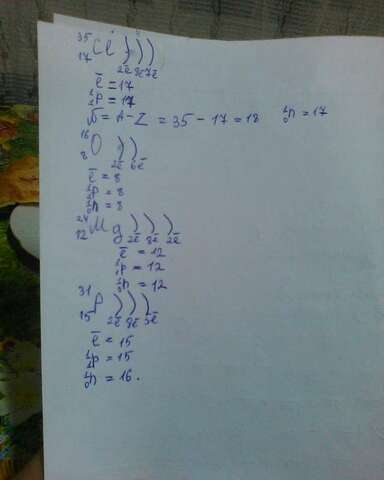 35
17 Cl ) ) )
2ē 8ē 7ē
ē = 17
¹₁p = 17
N = A - Z = 35 - 17 = 18 ¹₀n = 17
16
8 O ) )
2ē 6ē
ē = 8
¹₁p = 8
¹₀n = 8
24
12 Mg ) ) )
2ē 8ē 2ē
ē = 12
¹₁p = 12
¹₀n = 12
31
15 P ) ) )
2ē 8ē 5ē
ē = 15
¹₁p = 15
¹₀n = 16.